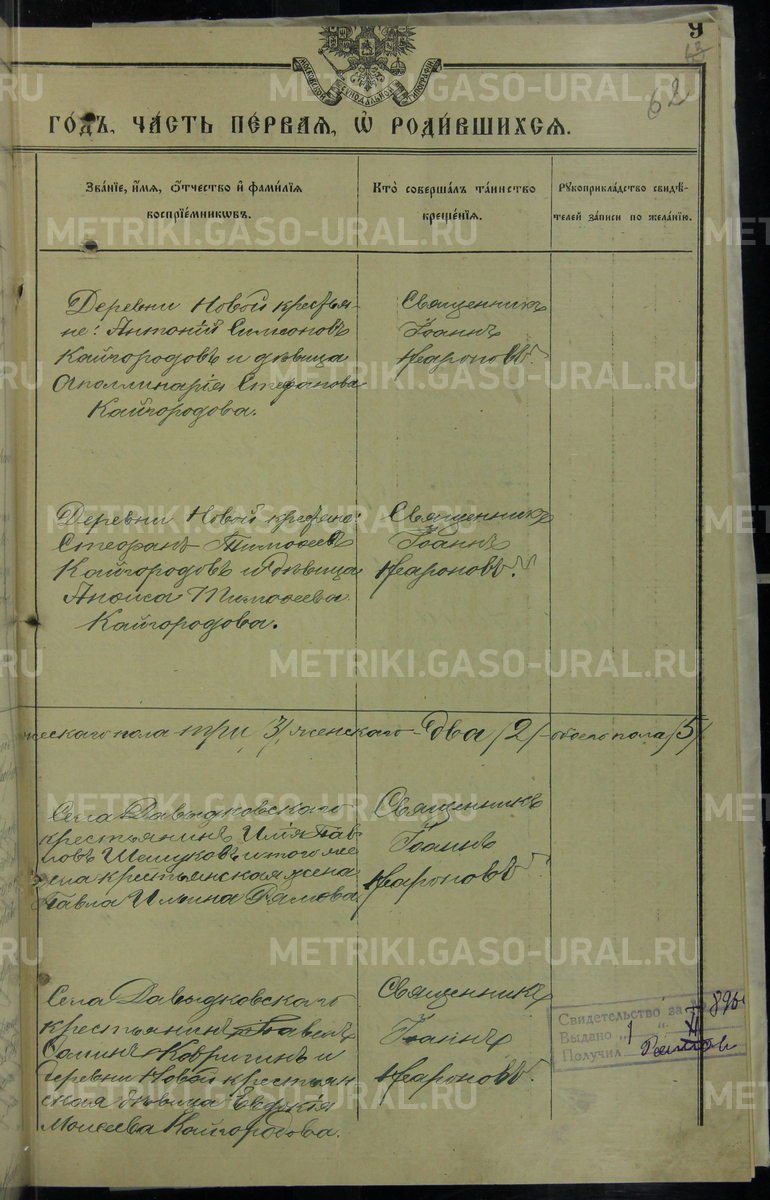 9
62
МОСКОВСКОЙ СУНОДАЛЬНОЙ ТИПОГРАФІИ
ГО́ДЪ, ЧА́СТЬ ПЕ́РВАЯ, Ѡ҆ РОДИ́ВШИХСЯ.
Зва́нїе, и҆́мя, ѻ҆́тчество и҆ фами́лїя воспрїе́мникѡвъ.
Кто̀ соверша́лъ та́инство креще́нїя.
Рꙋкоприкла́дство свидѣ́телей за́писи по жела́нїю.
Деревни Новой крестья-
не: Антоній Симеоновъ
Кайгородовъ и дѣвица
Аполлинарія Стефанова
Кайгородова.
Священникъ
Іоаннъ
Деревни Новой крестьяне:
Стефанъ Тимоѳеевъ
Кайгородовъ и дѣвица
Анѳиса Тимоѳеева
Кайгородова.
Священникъ
Іоаннъ
ческаго пола три /3/ женскаго два /2/ обоего пола /5/
Села Давыдковскаго
крестьянинъ Илія Пав-
ловъ Шешуковъ и того же
села крестьянская жена
Павла Ильина
Священникъ
Іоаннъ
Села Давыдковскаго
крестьянинъ Павелъ
Кобригинъ и
деревни Новой крестьян-
ская дѣвица Евдокія
Моисеева Кайгородова.
Священникъ
Іоаннъ
Свидетельство за №
Выдано „1 " XI
Получил
METRIKI.GASO-URAL.RU